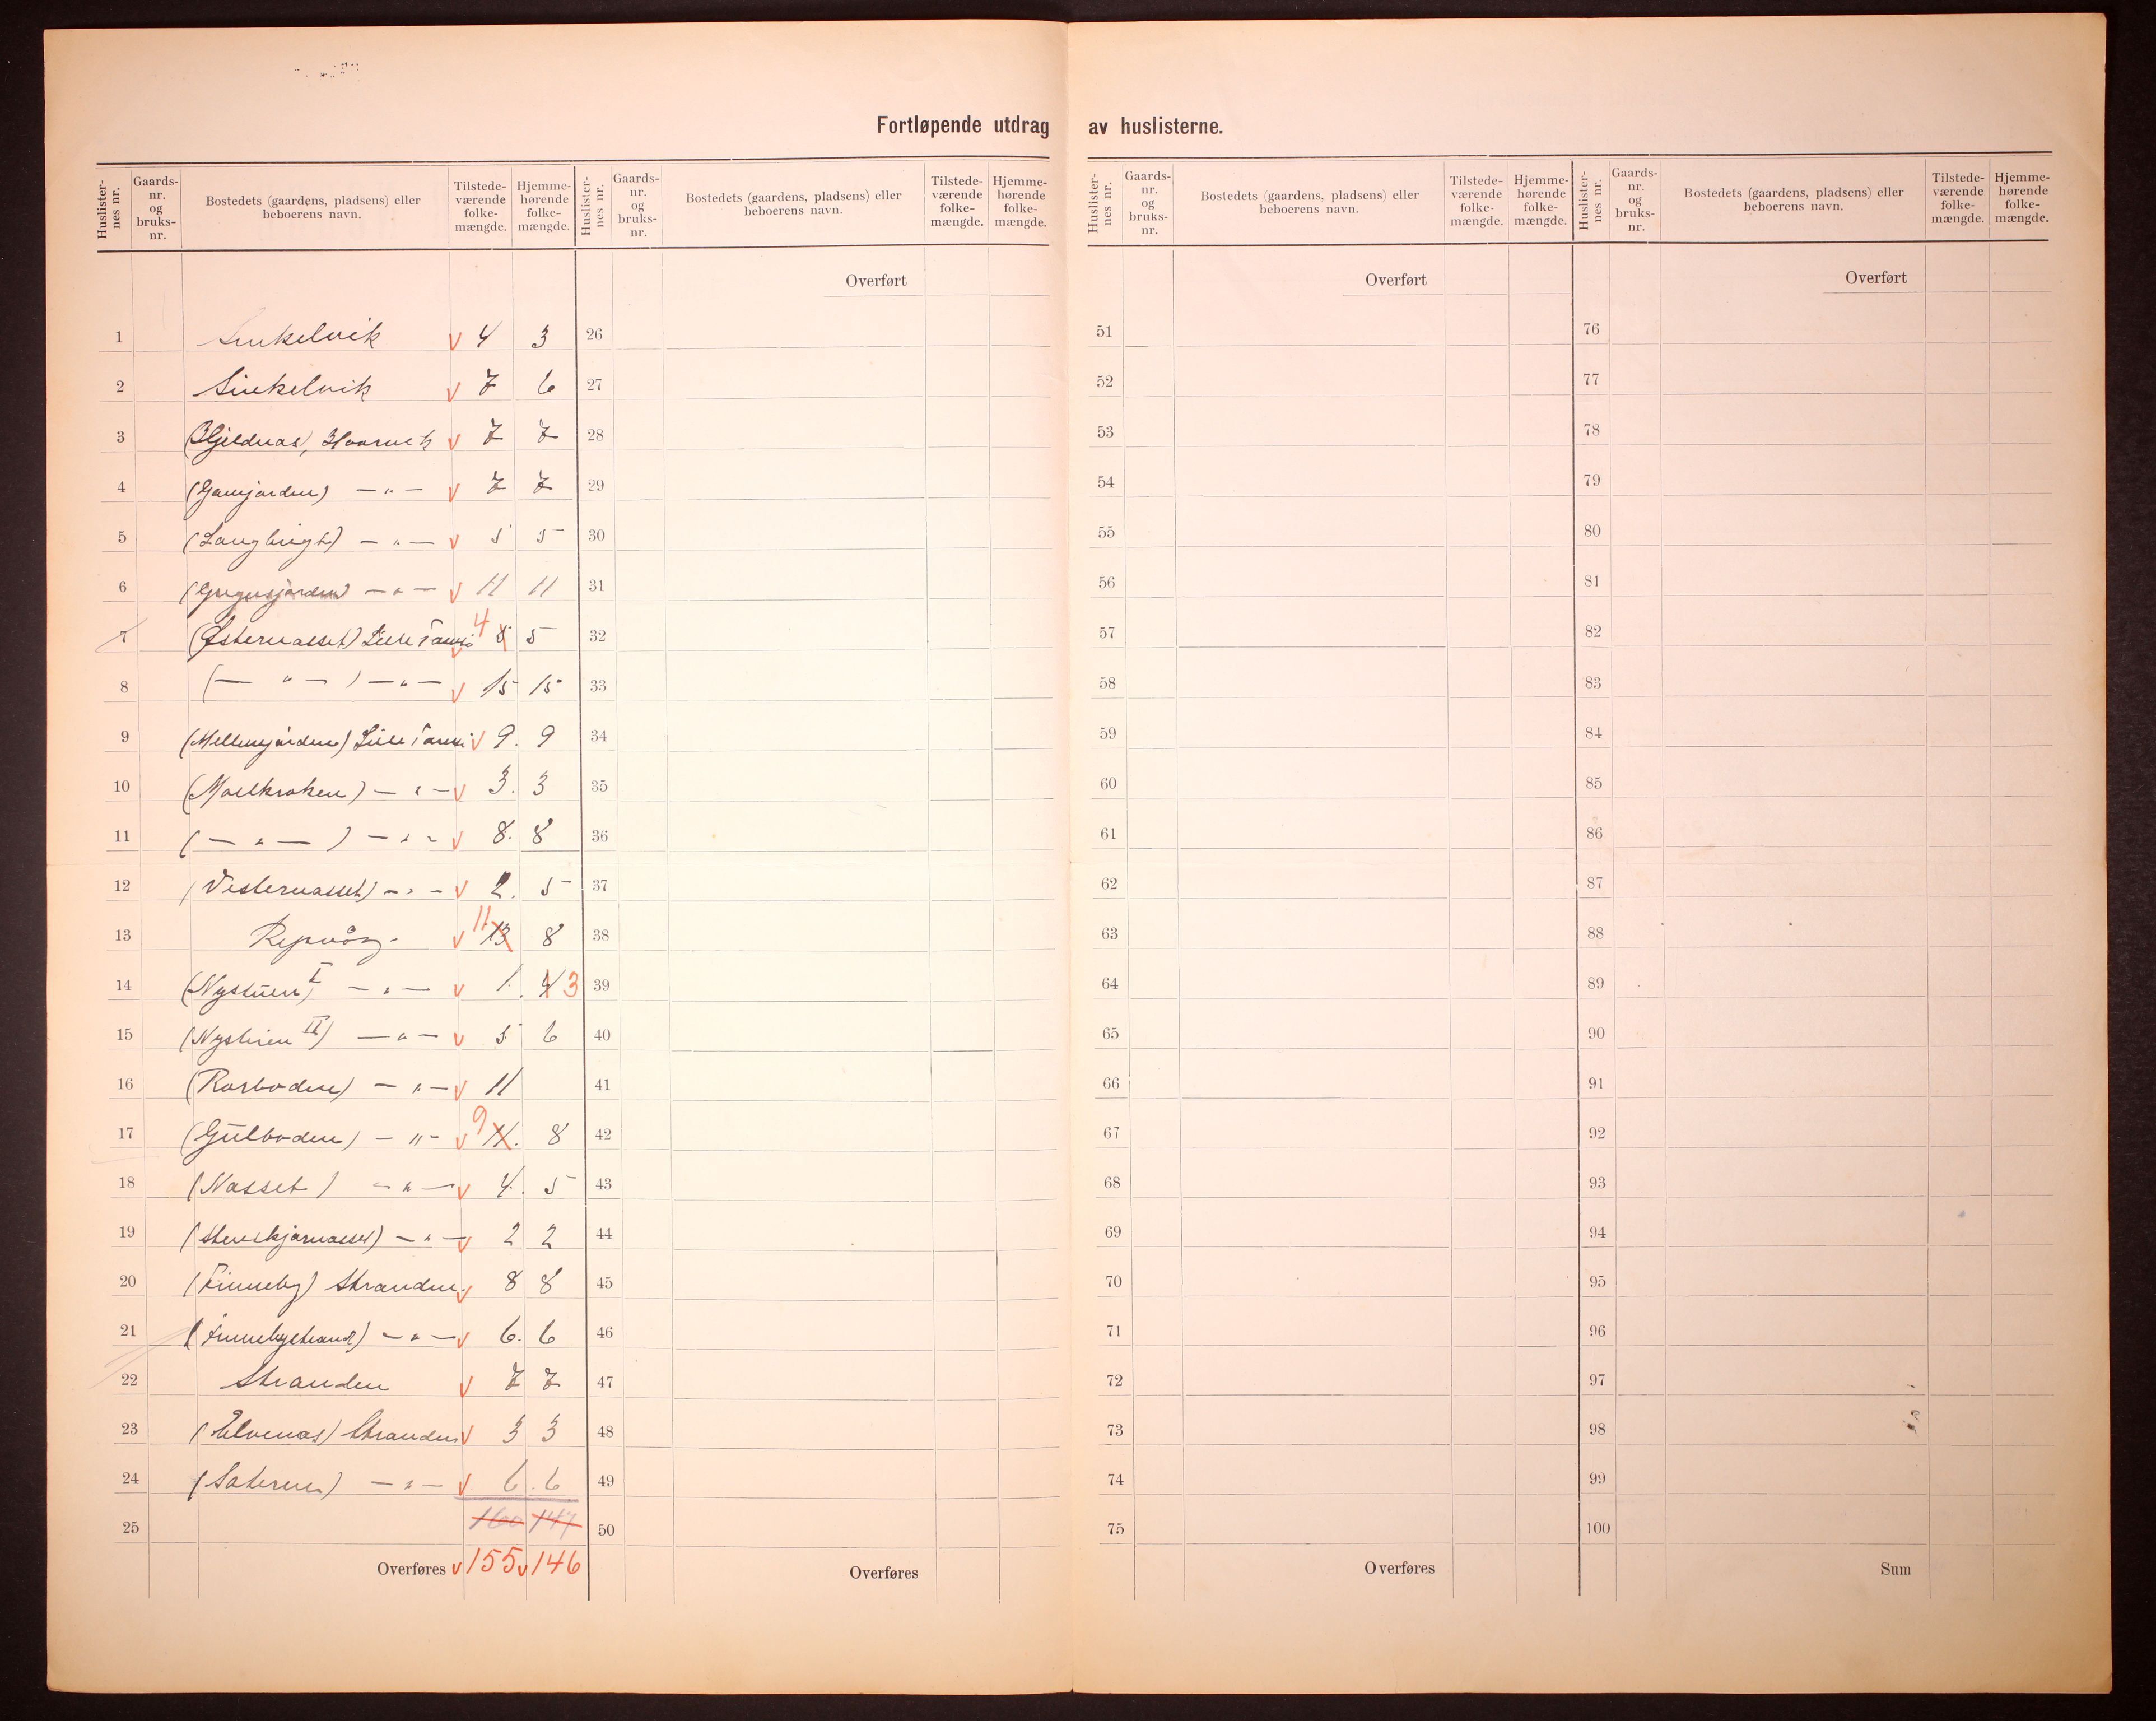 Fortløpende utdrag av huslisterne.
Huslister-nes nr. Gaards-nr. og bruks-nr. Bostedets (gaardens, pladsens) eller beboerens navn. Tilstede-værende folke-mængde. Hjemme-hørende folke-mængde.
Huslister-nes nr. Gaards-nr. og bruks-nr. Bostedets (gaardens, pladsens) eller beboerens navn. Tilstede-værende folke-mængde. Hjemme-hørende folke-mængde.
Huslister-nes nr. Gaards-nr. og bruks-nr. Bostedets (gaardens, pladsens) eller beboerens navn. Tilstede-værende folke-mængde. Hjemme-hørende folke-mængde.
Huslister-nes nr. Gaards-nr. og bruks-nr. Bostedets (gaardens, pladsens) eller beboerens navn. Tilstede-værende folke-mængde. Hjemme-hørende folke-mængde.
1 Sinkelvik v 4 3
2 Sinkelvik v 7 6
3 v 7 7
4 — " — v 7 7
5 — " — v 5 5
6 — " — v 11 11
7 (Østernæsset) Lille Tamsø v 4 5 5
8 (— " —) — " — v 15 15
9 (Mellemjorden) Lille Tamsø v 9. 9
10 — " — v 3. 3
11 (— " —) — " — v 8. 8
12 (Vesternæsset) — " — v 2. 5
13 Repvåg v 11 13 8
14 (Nystuen I) — " — v 1. 4 3
15 (Nystuen II) — " — v 5 6
16 (Rorboden) — " — v 11
17 (Gulboden) — " — v 9 11. 8
18 (Næsset) — " — v 4. 5
19 — " — v 2 2
20 (Finneby) Stranden v 8 8
21 (Finnebystrand) — " — v 6. 6
22 Stranden v 7 7
23 (Elvenæs) Stranden v 3 3
24 — " — v 6. 6
25 160 147
Overføres v 155 v 146
Overført
26
27
28
29
30
31
32
33
34
35
36
37
38
39
40
41
42
43
44
45
46
47
48
49
50
Overføres
Overført
51
52
53
54
55
56
57
58
59
60
61
62
63
64
65
66
67
68
69
70
71
72
73
74
75
Overføres
Overført
76
77
78
79
80
81
82
83
84
85
86
87
88
89
90
91
92
93
94
95
96
97
98
99
100
Sum